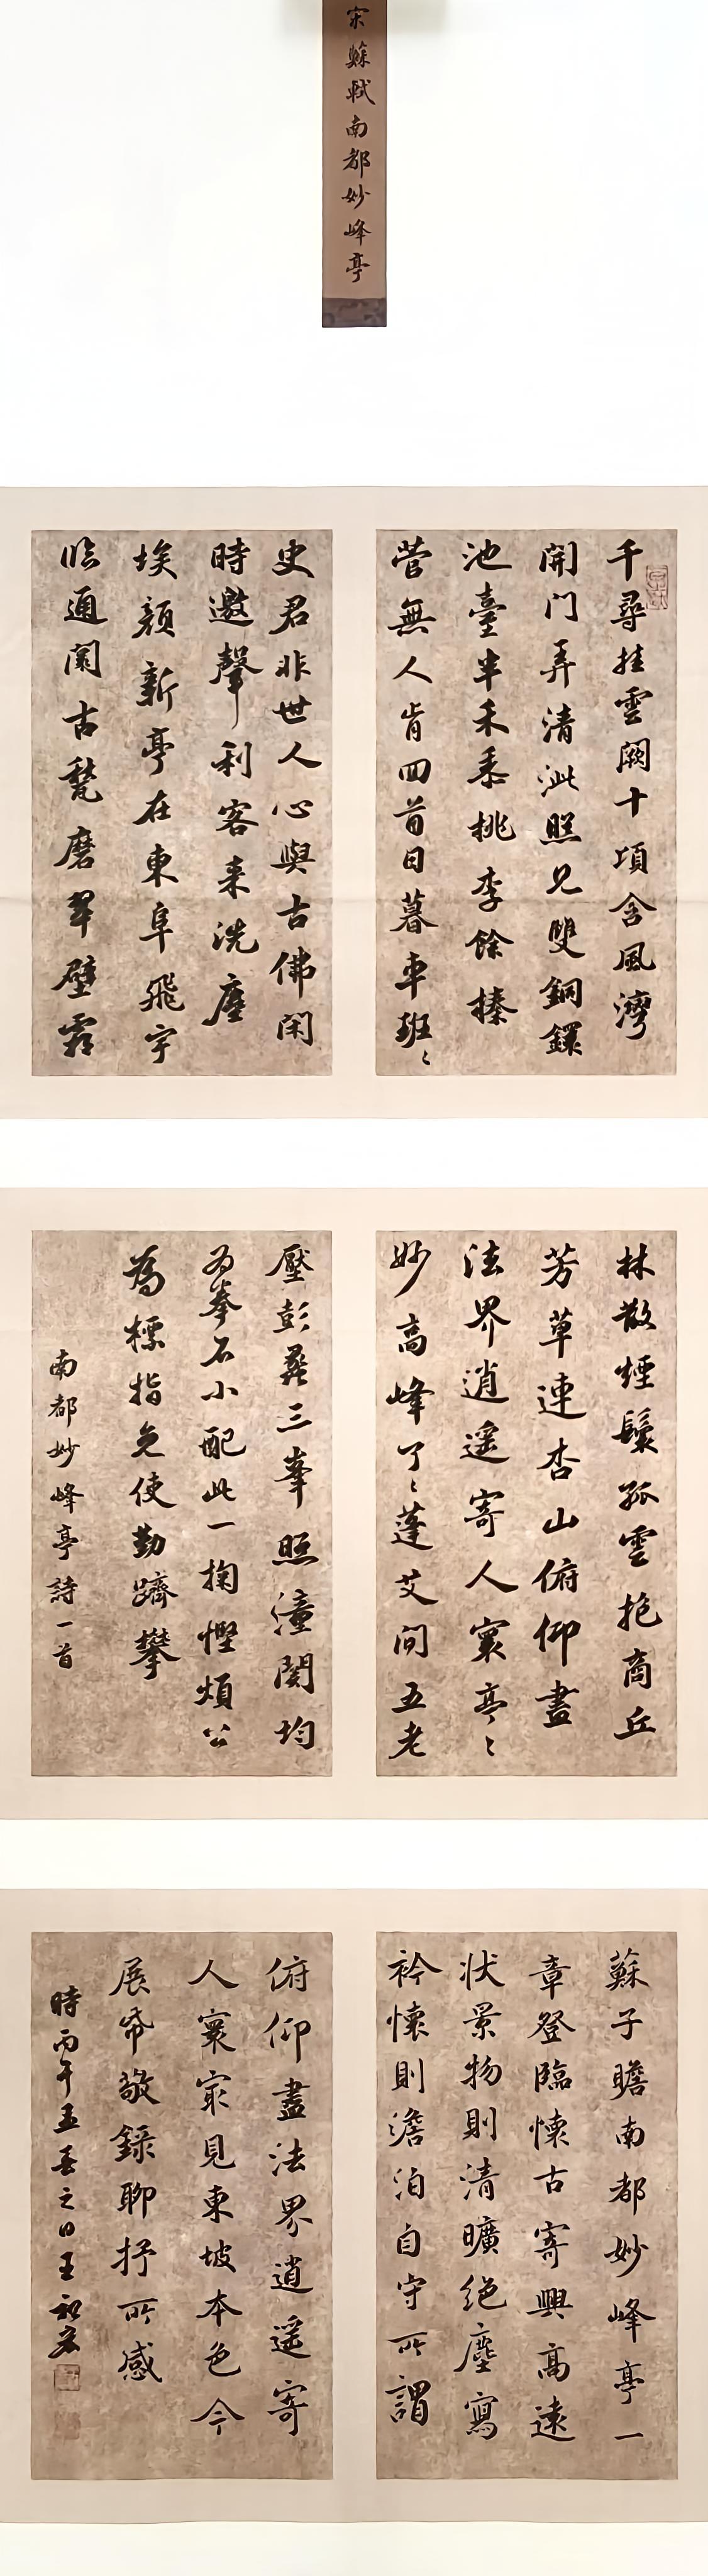 宋蘇軾南都妙峰亭
千尋挂雲闕十項含風灣
開門弄清泚照見雙銅鐶
池臺半禾黍桃李餘榛
菅無人肯回首日暮車班〻
史君非世人心與古佛閑
時邀聲利客来洗塵
埃顏新亭在東阜飛宇
臨通闤古甃磨翠壁霜
林散煙鬟孤雲抱商丘
芳草連杏山俯仰盡
法界逍遙寄人寰亭〻
妙高峰了〻蓬艾間五老
壓彭蠡三峯照潼關均
為拳石小配此一掬慳煩公
為標指免使勤躋攀
南都妙峰亭詩一首
蘇子瞻南都妙峰亭一
章登臨懷古寄興高遠
狀景物則清曠絕塵寫
衿懷則澹泊自守所謂
俯仰盡法界逍遙寄
人寰最見東坡本色今
展帋敬錄聊抒所感
時丙午立春之日王